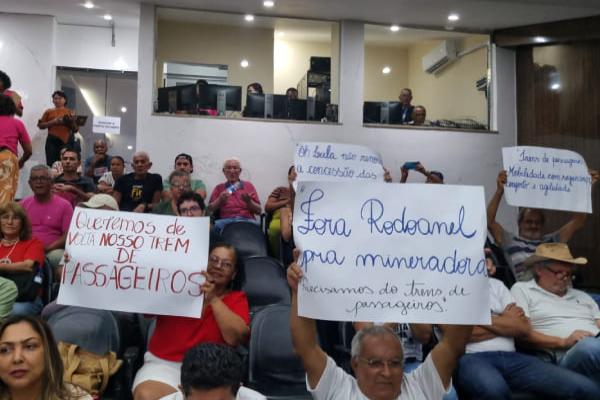 Queremos de
VOLTA NOSSO TREM
DE
PASSAGEIROS
"Oh Lula não renove
a concessão das
"Fora Rodoanel
pra mineradora
Precisamos do trens de
passageiros"
"Trens de passageiros
Mobilidade com segurança
conforto e agilidade"